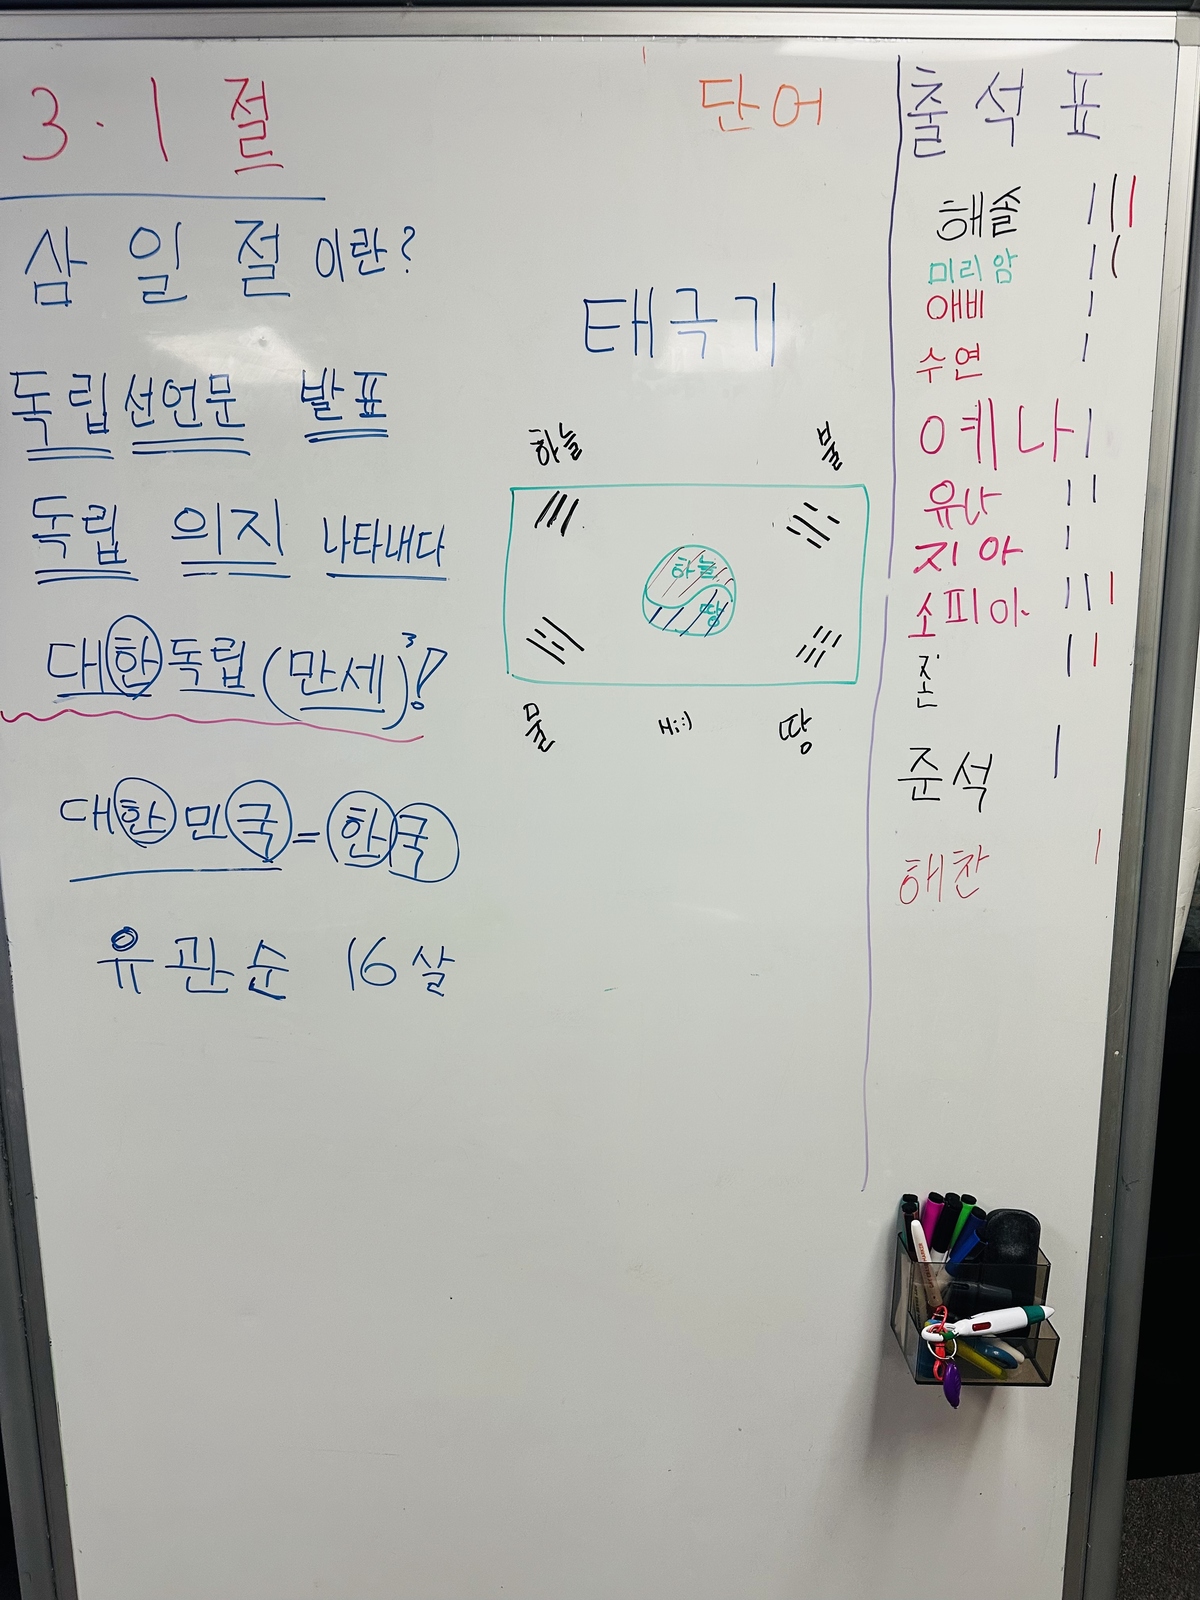 3·1절
삼일절이란?
독립선언문 발표
독립 의지 나타내다
대한독립(만세)³!
대한민국=한국
유관순 16살
단어
태극기
하늘 불
하늘
땅
물 Hi:) 땅
출석표
해솔 |||
미리암 ||
애비 |
수연 |
예나 |
유나 ||
지아 |
소피아 |||
존 ||
준석 |
해찬 |